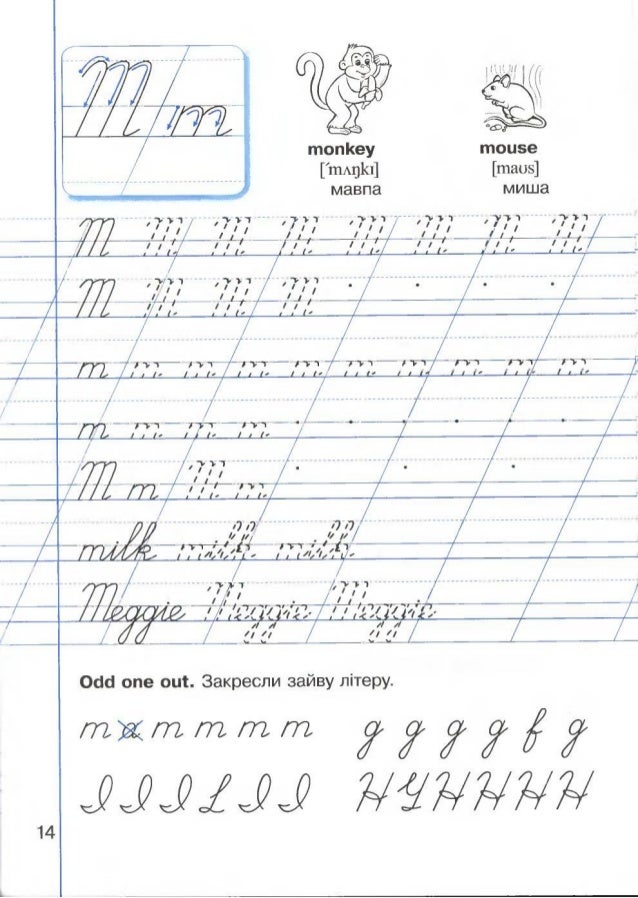 M m
monkey mouse
[ˈmʌŋkɪ] [maʊs]
мавпа миша
M M M M M M M M
M M M M
m m m m m m m m m m
m m m m
M m M m
milk milk milk
Meggie Meggie Meggie
Odd one out. Закресли зайву літеру.
m a m m m m g g g g f g
I I I L I I H Y H H H H
14